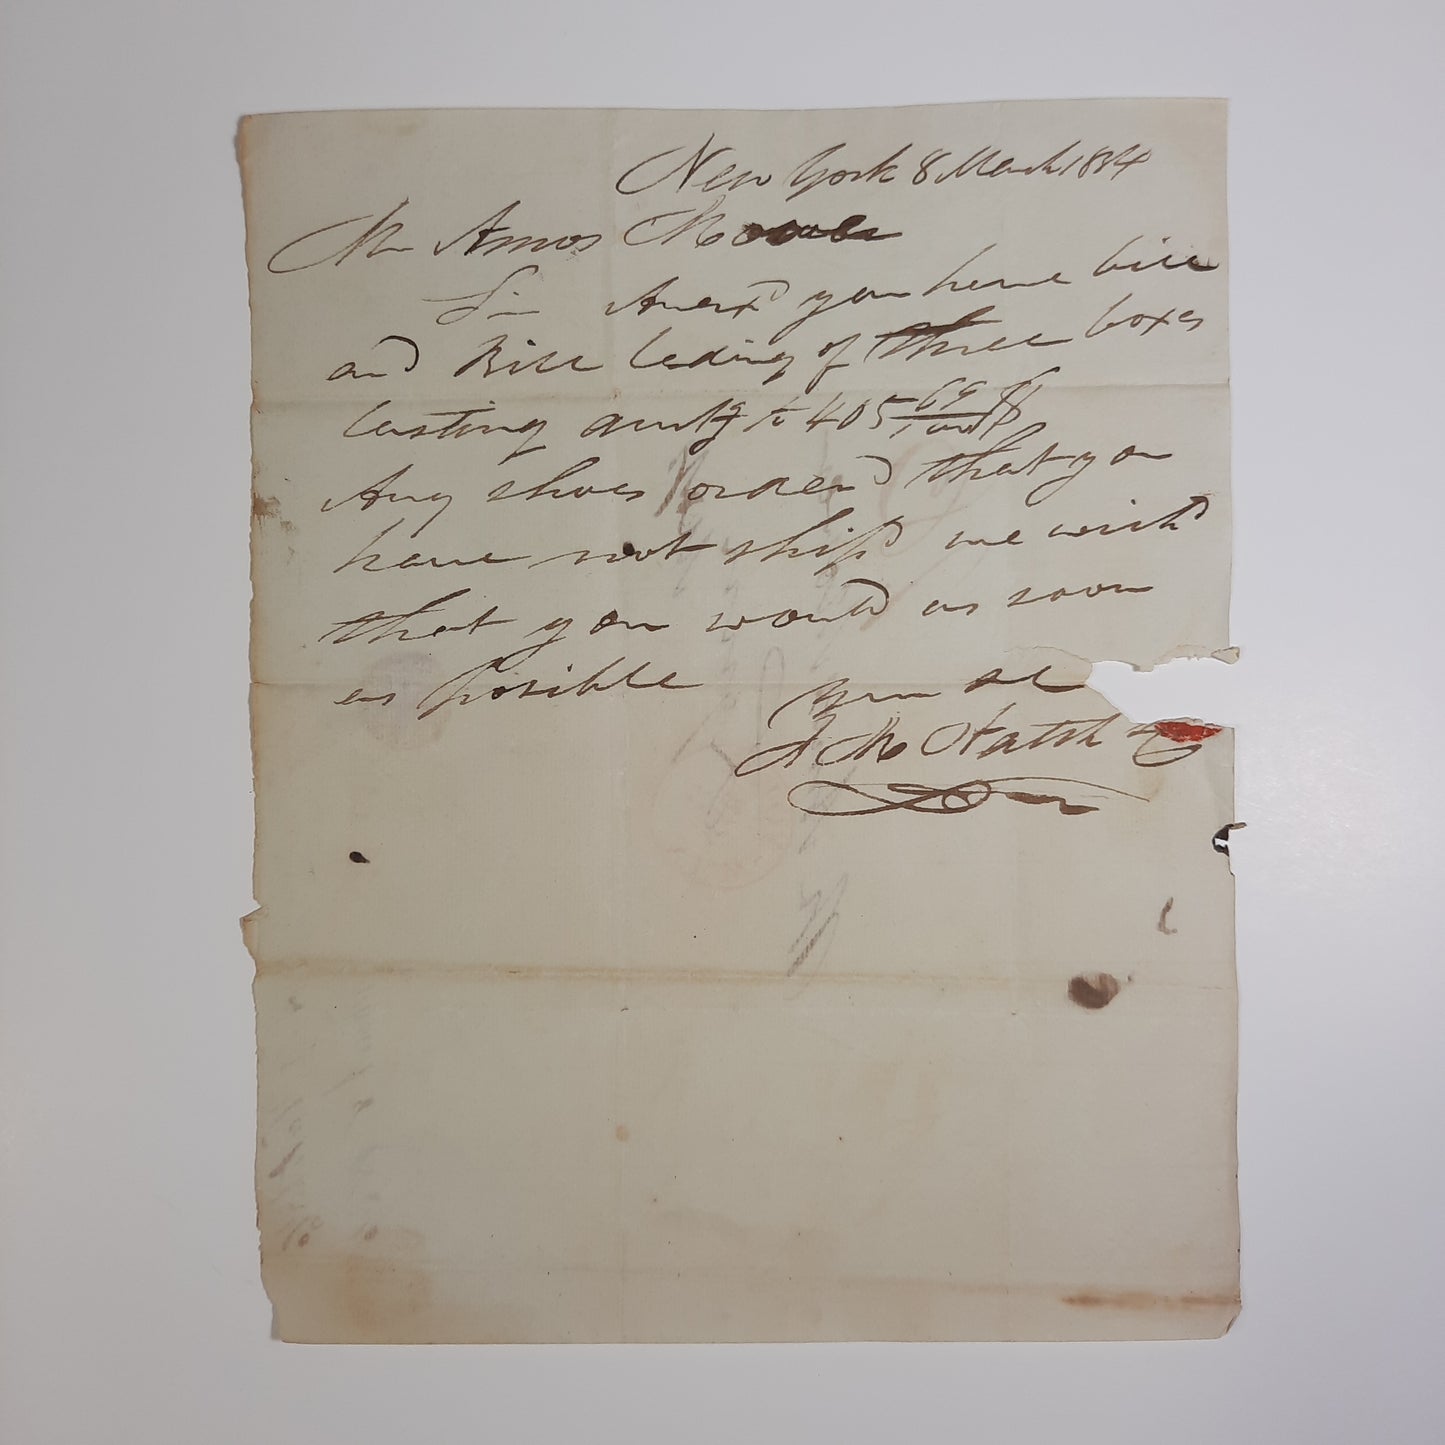 New York 8 March 1834
Mr Amos
Sir Anex'd you have bill
and Bill lading of three boxes
lasting amtg to 405 69/100 $
Any shoes order'd that you
have not ship'd we wish'd
that you would as soon
as posible
Your &c
Hatch